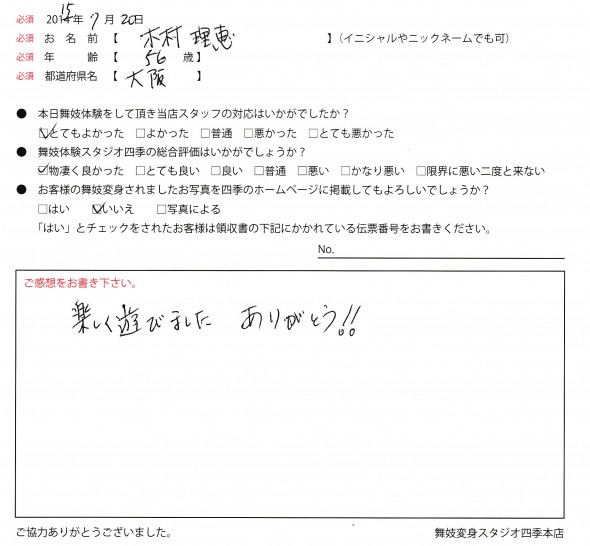 必須 2015年 7月 20日
必須 お名前【 木村 理恵 】(イニシャルやニックネームでも可)
必須 年齢【 56 歳】
必須 都道府県名【 大阪 】
● 本日舞妓体験をして頂き当店スタッフの対応はいかがでしたか？
☑とてもよかった □よかった □普通 □悪かった □とても悪かった
● 舞妓体験スタジオ四季の総合評価はいかがでしょうか？
☑物凄く良かった □とても良い □良い □普通 □悪い □かなり悪い □限界に悪い二度と来ない
● お客様の舞妓変身されましたお写真を四季のホームページに掲載してもよろしいでしょうか？
□はい ☑いいえ □写真による
「はい」とチェックをされたお客様は領収書の下記にかかれている伝票番号をお書きください。
No.
ご感想をお書き下さい。
楽しく遊びました ありがとう!!
ご協力ありがとうございました。 舞妓変身スタジオ四季本店